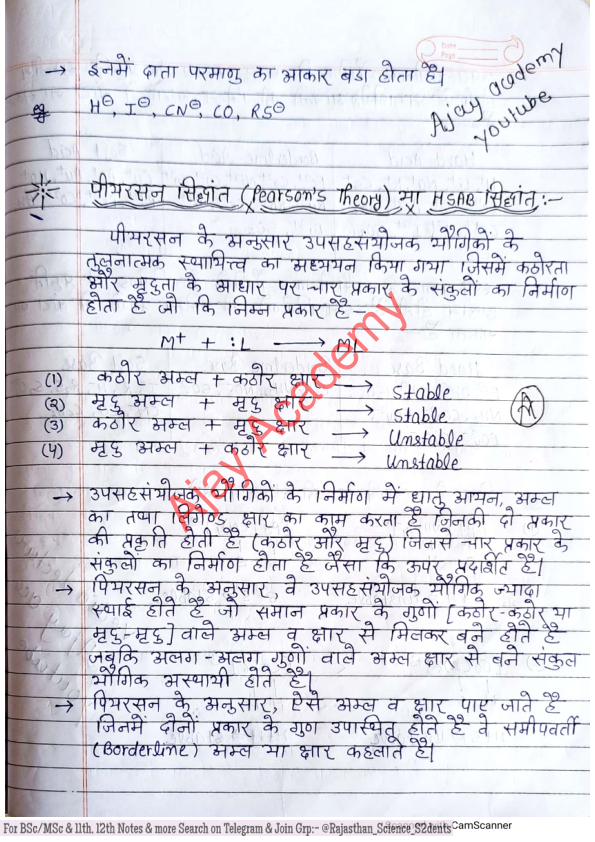 Date
Page
→ इनमें दाता परमाणु का आकार बडा होता है|
eg H⊖, I⊖, CN⊖, CO, RS⊖
Ajay academy
youtube
पीयरसन सिद्धांत (Pearson's Theory) या HSAB सिद्धांत:-
पीयरसन के अनुसार उपसहसंयोजक यौगिकों के
तुलनात्मक स्थायित्त्व का अध्ययन किया गया जिसमें कठोरता
और मृदुता के आधार पर चार प्रकार के संकुलों का निर्माण
होता है जो कि निम्न प्रकार है-
M⁺ + :L ⟶ ML
(1) कठोर अम्ल + कठोर क्षार ⟶ Stable
(2) मृदु अम्ल + मृदु क्षार ⟶ Stable
(3) कठोर अम्ल + मृदु क्षार ⟶ Unstable
(4) मृदु अम्ल + कठोर क्षार ⟶ Unstable
Ajay Academy
→ उपसहसंयोजक यौगिकों के निर्माण में धातु आयन, अम्ल
का तथा लिगेण्ड क्षार का काम करता है जिनकी दो प्रकार
की प्रकृति होती है (कठोर और मृदु) जिनसे चार प्रकार के
संकुलों का निर्माण होता है जैसा कि ऊपर प्रदर्शित है|
→ पियरसन के अनुसार, वे उपसहसंयोजक यौगिक ज्यादा
स्थाई होते है जो समान प्रकार के गुणों [कठोर-कठोर या
मृदु-मृदु] वाले अम्ल व क्षार से मिलकर बने होते है
जबकि अलग-अलग गुणों वाले अम्ल क्षार से बने संकुल
यौगिक अस्थायी होते है|
→ पियरसन के अनुसार, ऐसे अम्ल व क्षार पाए जाते है
जिनमें दोनों प्रकार के गुण उपस्थित होते है वे समीपवर्ती
(Borderline) अम्ल या क्षार कहलाते है|
For BSc/MSc & 11th, 12th Notes & more Search on Telegram & Join Grp:- @Rajasthan_Science_S2dents
CamScanner